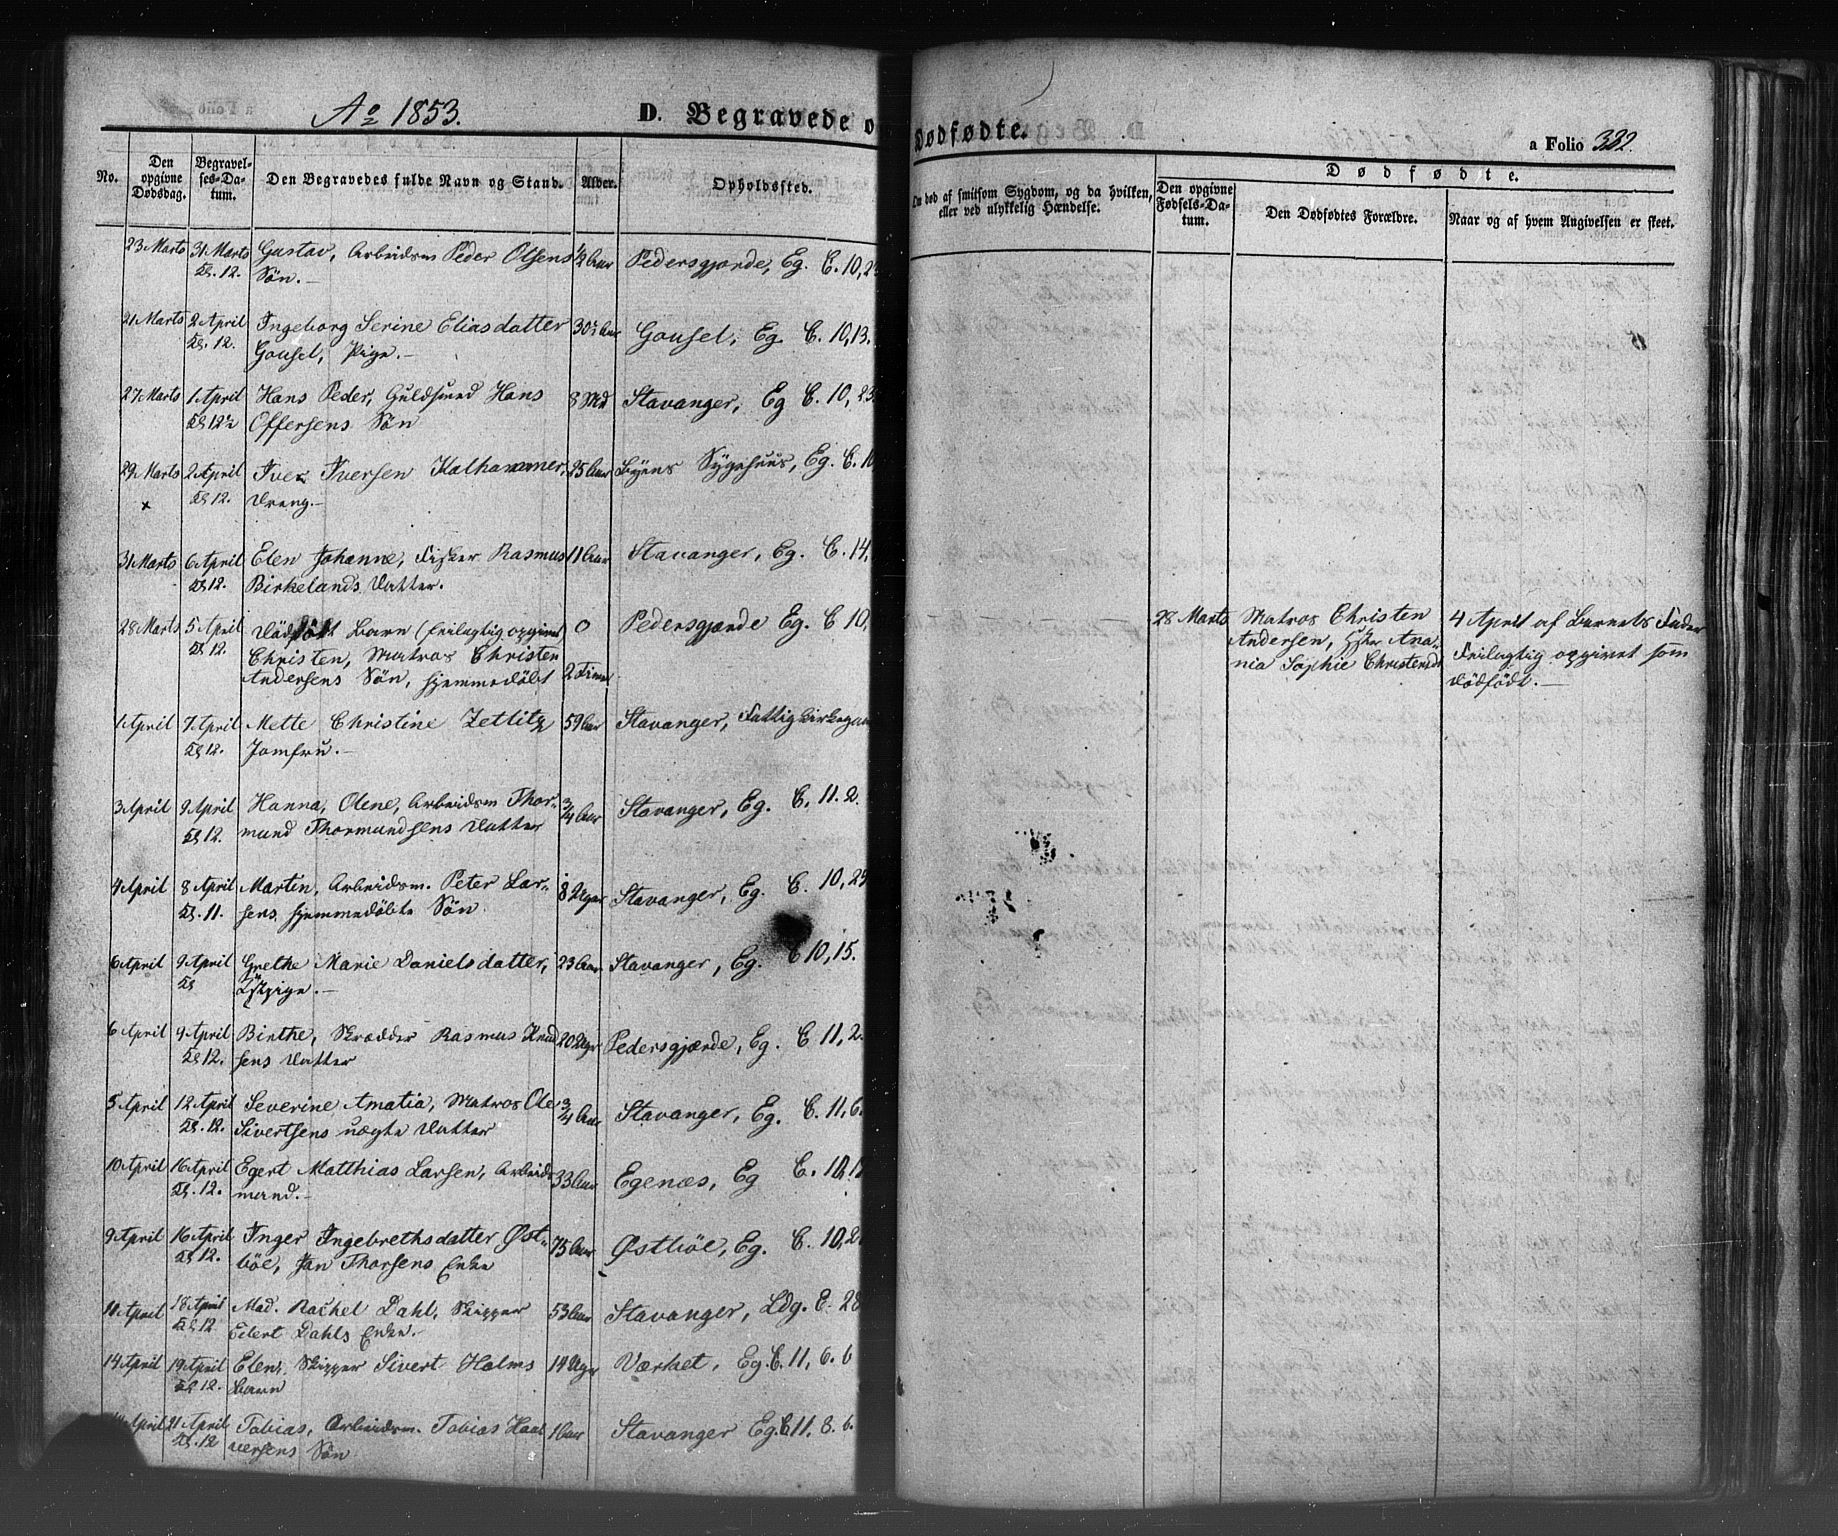 Ao 1853.
D. Begravede o
Dødfødte.
a Folio 332.
No.
Den opgivne Dødsdag.
Begravelses-Datum.
Den Begravedes fulde Navn og Stand.
Alder.
Opholdssted.
Om død af smitsom Sygdom, og da hvilken, eller ved ulykkelig Hændelse.
Dødfødte.
Den opgivne Fødsels-Datum.
Den Dødfødtes Forældre.
Naar og af hvem Angivelsen er skeet.
23 Marts 31 Marts Gustav, Arbeidsm Peder Olsens 1/2 Aar Pedersgjærde, Eg. C. 10,
Kl. 12. Søn.
21 Marts 2 April Ingeborg Serine Eliasdatter Aar Gousel, Eg. C. 10,13.
Kl. 12. Gousel, Pige.
27 Marts 1 April Hans Peder, Guldsmed Hans 8 Md Stavanger, Eg C. 10, 23
Kl 12½ Offersens Søn
29 Marts 2 April Iver Iversen Kalhammer, 25 Aar Byens Sygehuus, Eg. C. 10
x Kl 12. Dreng.
31 Marts 6 April Elen Johanne, Fisker Rasmus 11 Aar Stavanger, Eg. C. 14,
Kl 12. Birkelands Datter.
28 Marts 5 April Dødfødt Barn (feilagtig opgivet 0 Pedersgjærde Eg. C 10,
Kl 12. Christen, Matros Christen
Andersens Søn, hjemmedøbt 2 Timer
28 Marts Matros Christen 4 April af Barnets Fader
Andersen, Hustru Anania Sophie Christensd Feilagtig opgivet som
dødfødt.
1 April 7 April Mette Christine Zetlitz 59 Aar Stavanger, Fattigkirkegaar
Kl 12. Jomfru.
3 April 9 April Hanna, Olene, Arbeidsm Thor- 3/4 Aar Stavanger, Eg. C. 11. 2.
Kl 12. mund Thormundsens Datter
4 April 8 April Martin, Arbeidsm. Peter Lar- 8 Uger Stavanger, Eg. C. 10,
Kl. 11. sens hjemmedøbte Søn.
6 April 9 April Grethe Marie Danielsdatter, 23 Aar Stavanger, Eg. C 10, 15.
Kl
6 April 9 April Birthe, Skrædder Rasmus Knud 20 Uger Pedersgjærde, Eg. C 11, 2.
Kl 12. sens Datter
5 April 12 April Severine Amalia, Matros Ole 3/4 Aar Stavanger, Eg. C. 11, 6.
Kl. 12. Sivertsens uægte Datter
10 April 16 April Egert Matthias Larsen, Arbeids 33 Aar Egenæs, Eg C.
Kl. 12. mand.
9 April 16 April Inger Ingebrethsdatter Øst- 75 Aar Østbøe, Eg. C. 10,
Kl 12. bøe, Jan Thorsens Enke
11 April 18 April Mad. Rachel Dahl, Skipper 53 Aar Stavanger, Ldg. E. 28
Kl 12 Eilert Dahls Enke.
14 April 19 April Elen, Skipper Sivert Holms 14 Uger Værket, Eg. C. 11, 6. 6
Kl 12. Barn
April 21 April Tobias, Arbeidsm. Tobias Haal 1 Aar Stavanger Eg. C 11, 8. 6.
Kl. 12 versens Søn